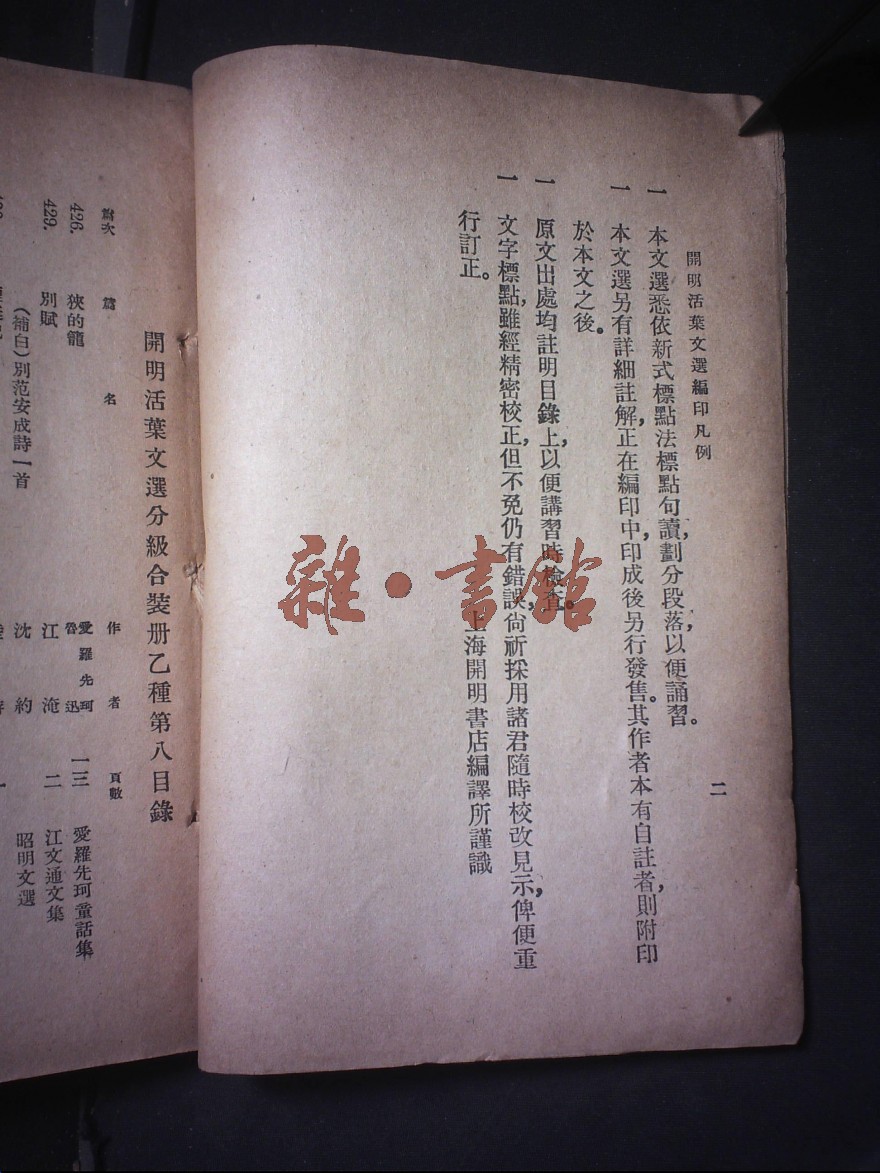 開明活葉文選編印凡例
二
一 本文選悉依新式標點法標點句讀,劃分段落,以便誦習。
一 本文選另有詳細註解,正在編印中,印成後另行發售。其作者本有自註者,則附印
於本文之後。
一 原文出處均註明目錄上,以便講習時檢查。
一 文字標點,雖經精密校正,但不免仍有錯誤,尙祈採用諸君隨時校改見示,俾便重
行訂正。
上海開明書店編譯所謹識
開明活葉文選分級合裝册乙種第八目錄
篇次 篇名 作者 頁數
426. 狹的籠 愛羅先珂 魯迅 一三 愛羅先珂童話集
429. 別賦 江淹 二 江文通文集
(補白)別范安成詩一首 沈約 昭明文選
雜·書館